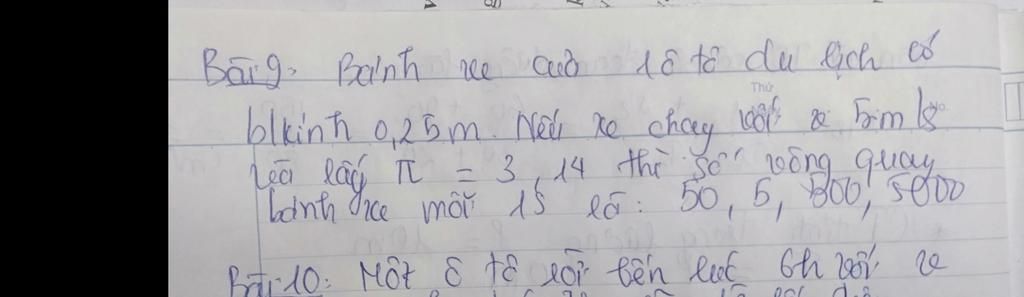 Bài 9. Bánh xe của 1 ô tô du lịch có
b/kính 0,25m. Nếu xe chạy với x 5m/s
Nếu lấy π = 3,14 thì số vòng quay
bánh xe mỗi 1s là: 50, 5, 500, 5000
Bài 10: Một ô tô rời bến lúc 6h với x